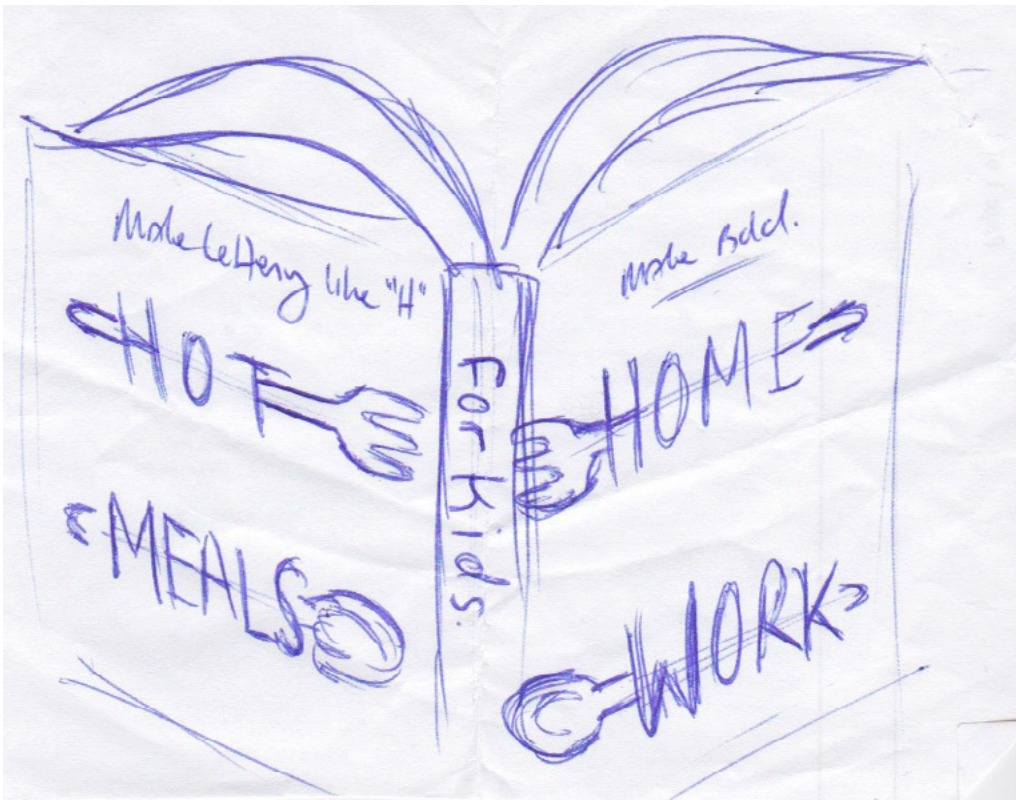 Make lettering like "H"
HOT
MEALS
For Kids.
Make Bold.
HOME
WORK